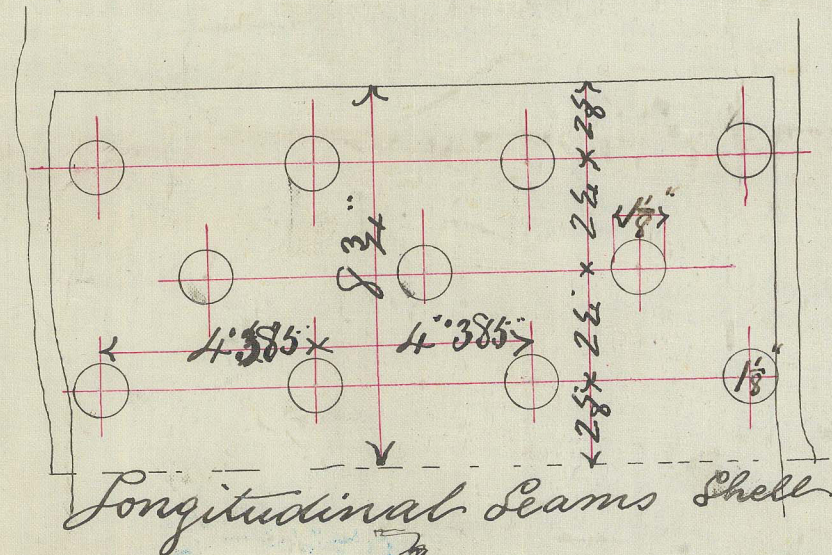 8 3/4"
2 1/8 × 2 1/4 × 2 1/4 × 2 1/8
1 1/8"
4".385 × 4".385"
1 1/8"
Longitudinal Seams Shell